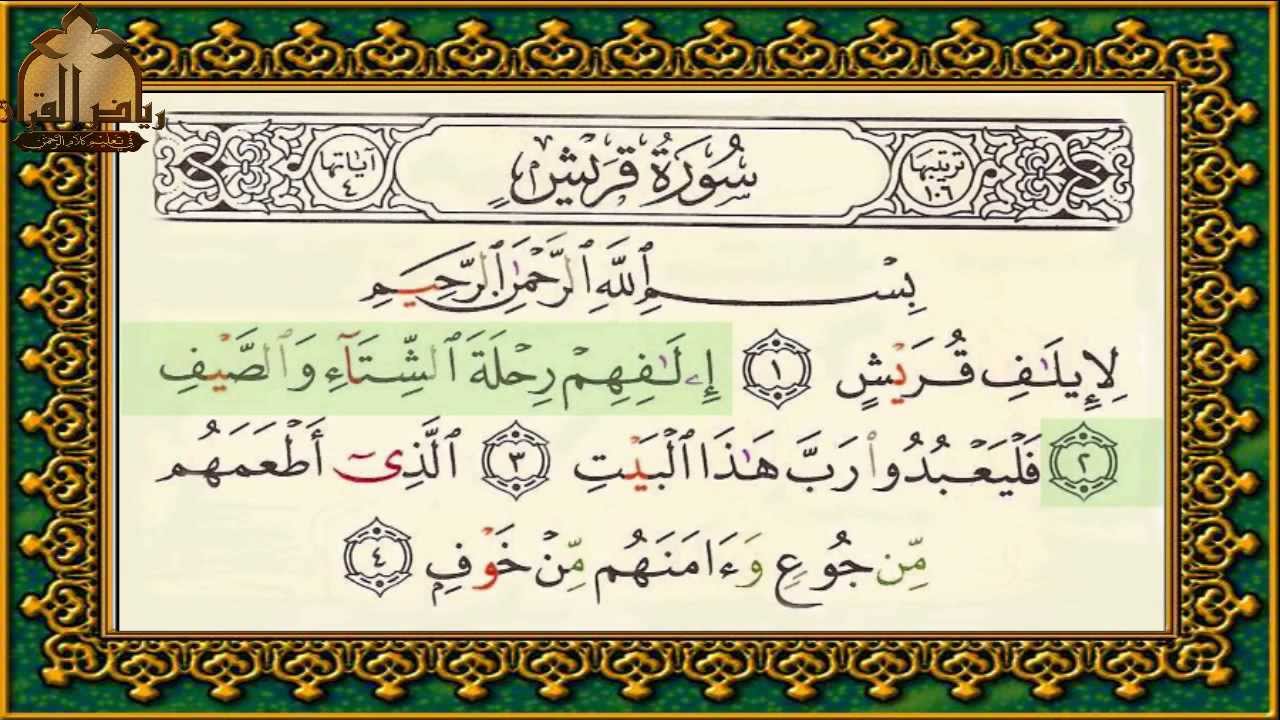 رياض القرآن
في تعليم كلام الرحمن
ترتيبها ١٠٦
سُورَةُ قُرَيْشٍ
آياتها ٤
بِسْمِ ٱللَّهِ ٱلرَّحْمَٰنِ ٱلرَّحِيمِ
لِإِيلَٰفِ قُرَيْشٍ ١ إِۦلَٰفِهِمْ رِحْلَةَ ٱلشِّتَآءِ وَٱلصَّيْفِ
٢ فَلْيَعْبُدُوا۟ رَبَّ هَٰذَا ٱلْبَيْتِ ٣ ٱلَّذِىٓ أَطْعَمَهُم
مِّن جُوعٍ وَءَامَنَهُم مِّنْ خَوْفٍۭ ٤